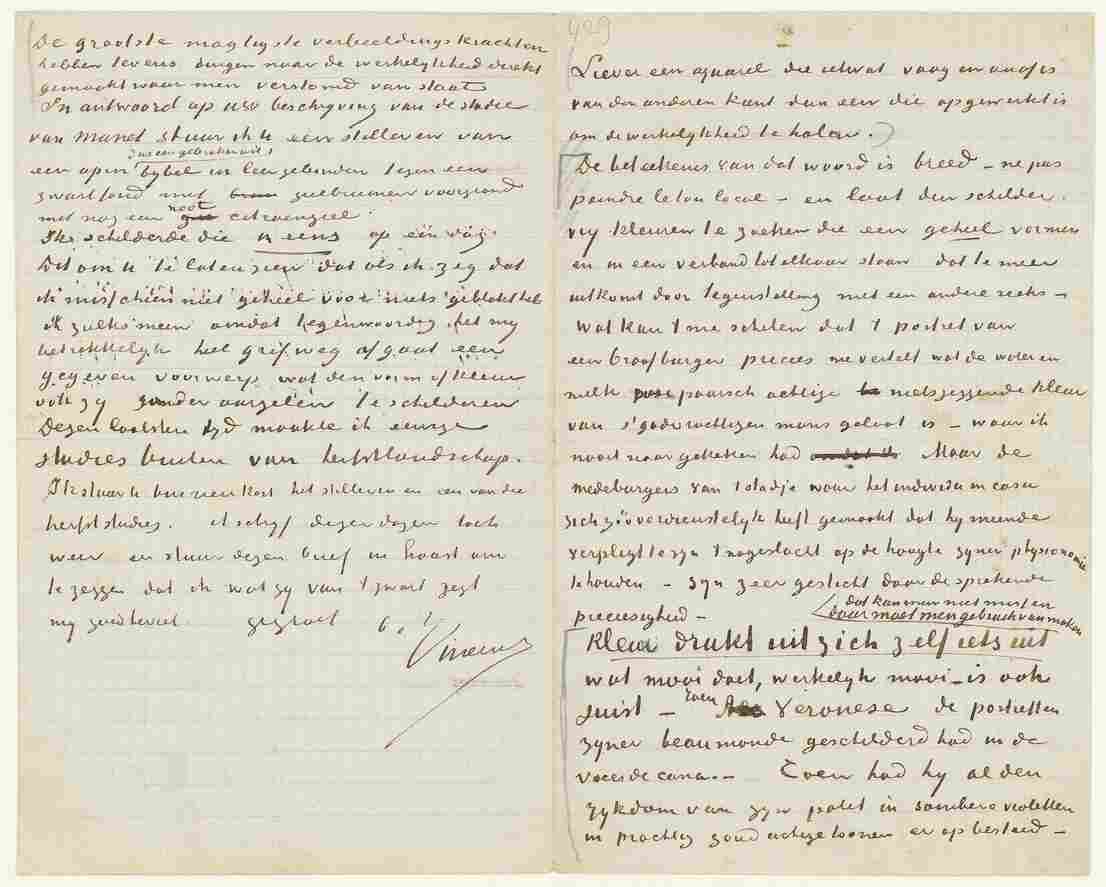 De grootste magtigste verbeeldingskrachten
hebben tevens dingen naar de werkelijkheid direkt
gemaakt waar men verstomd van staat
In antwoord op uw beschrijving van de studie
van Manet stuur ik U een stilleven van
dus een gebroken wit
een open bijbel in leer gebonden tegen een
zwart fond met geelbruinen voorgrond
met nog een noot citroengeel.
Ik schilderde die in eens op één dag.
Dit om U te laten zien dat als ik zeg dat
ik misschien niet geheel voor niets geblokt heb
ik zulks meen omdat tegenwoordig het mij
betrekkelijk heel grifweg afgaat een
gegeven voorwerp wat den vorm of kleur
ook zij zonder aarzelen te schilderen
Dezen laatsten tijd maakte ik eenige
studies buiten van herfstlandschap.
Ik stuur U binnenkort het stilleven en een van die
herfststudies. ik schrijf dezer dagen toch
weer en stuur dezen brief in haast om
te zeggen dat ik wat gij van 't zwart zegt
mij goed beviel. gegroet b. t. t.
Vincent
429
Liever een aquarel die ietwat vaag en onaf is
van den anderen kant dan een die opgewerkt is
om de werkelijkheid te halen.
De beteekenis van dat woord is breed – ne pas
peindre le ton local – en laat den schilder
vrij kleuren te zoeken die een geheel vormen
en in een verband tot elkaar staan dat te meer
uitkomt door tegenstelling met een andere reeks –
Wat kan 't me schelen dat 't portret van
een braafburger precies me vertelt wat de water en
melk paarsch achtige nietszeggende kleur
van s'godvruchtigen mans gelaat is – waar ik
nooit naar gekeken had Maar de
medeburgers van 't stadje waar het individu in casu
zich zóó verdienstelijk heeft gemaakt dat hij meende
verpligt te zijn 't nageslacht op de hoogte zijner physionomie
te houden – zijn zeer gesticht door de sprekende
preciesigheid –
dat kan men niet missen
daar moet men gebruik van maken
Kleur drukt uit zich zelf iets uit
wat mooi doet, werkelijk mooi – is ook
juist – Toen Veronese de portretten
zijner beau monde geschilderd had in de
Noces de Cana. – Toen had hij al den
rijkdom van zijn palet in sombere violetten
in prachtig goudachtige toonen er op besteed –